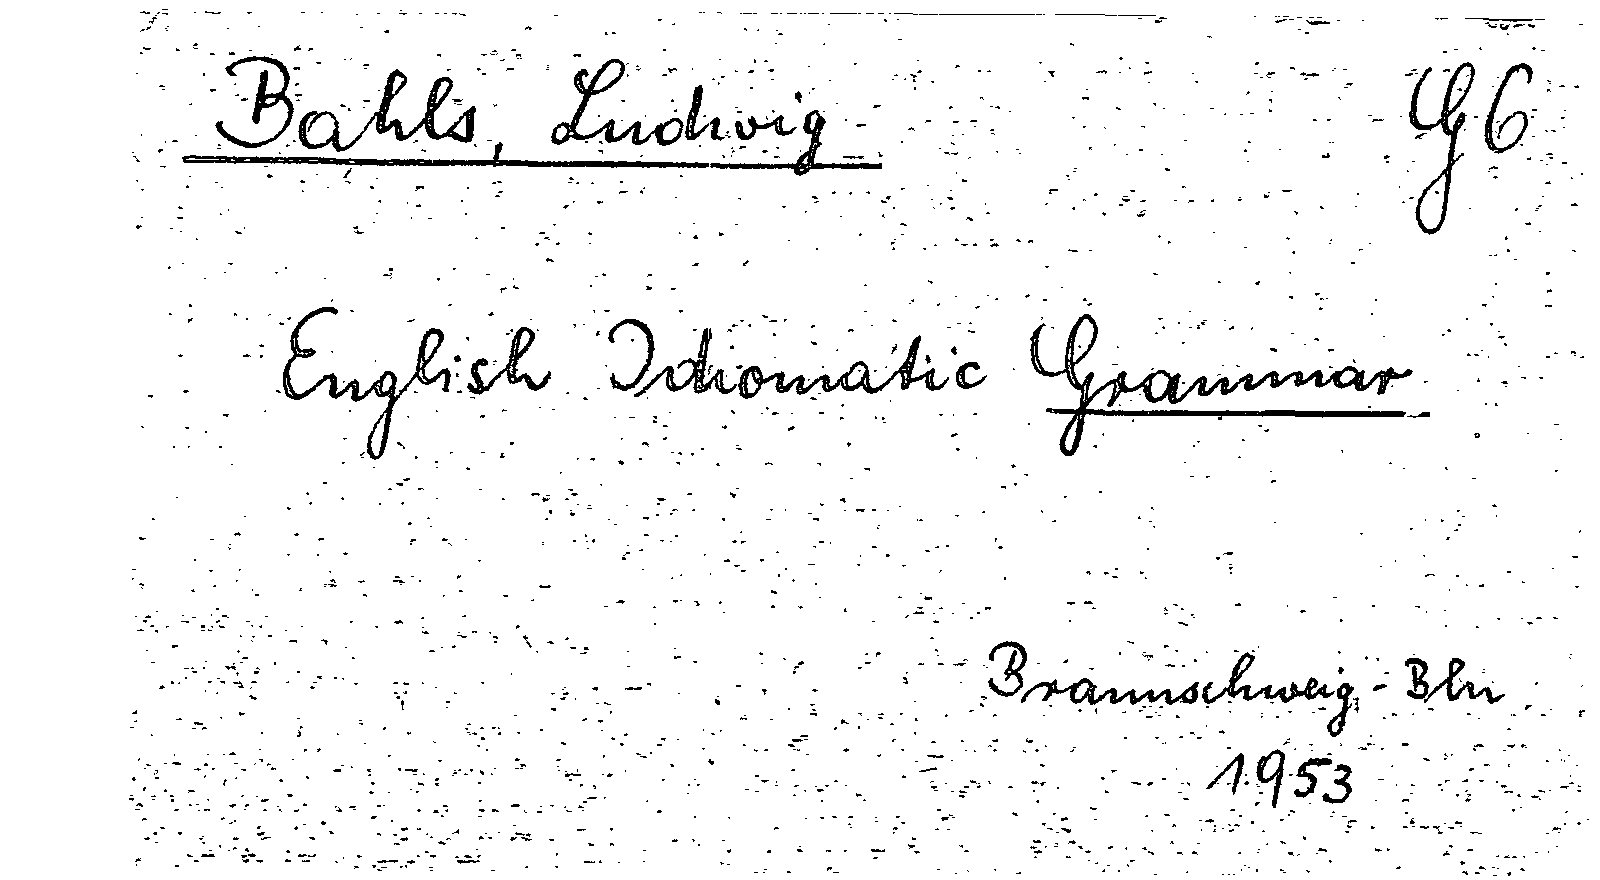 Bahls, Ludwig G6
English Idiomatic Grammar
Braunschweig - Bln
1953